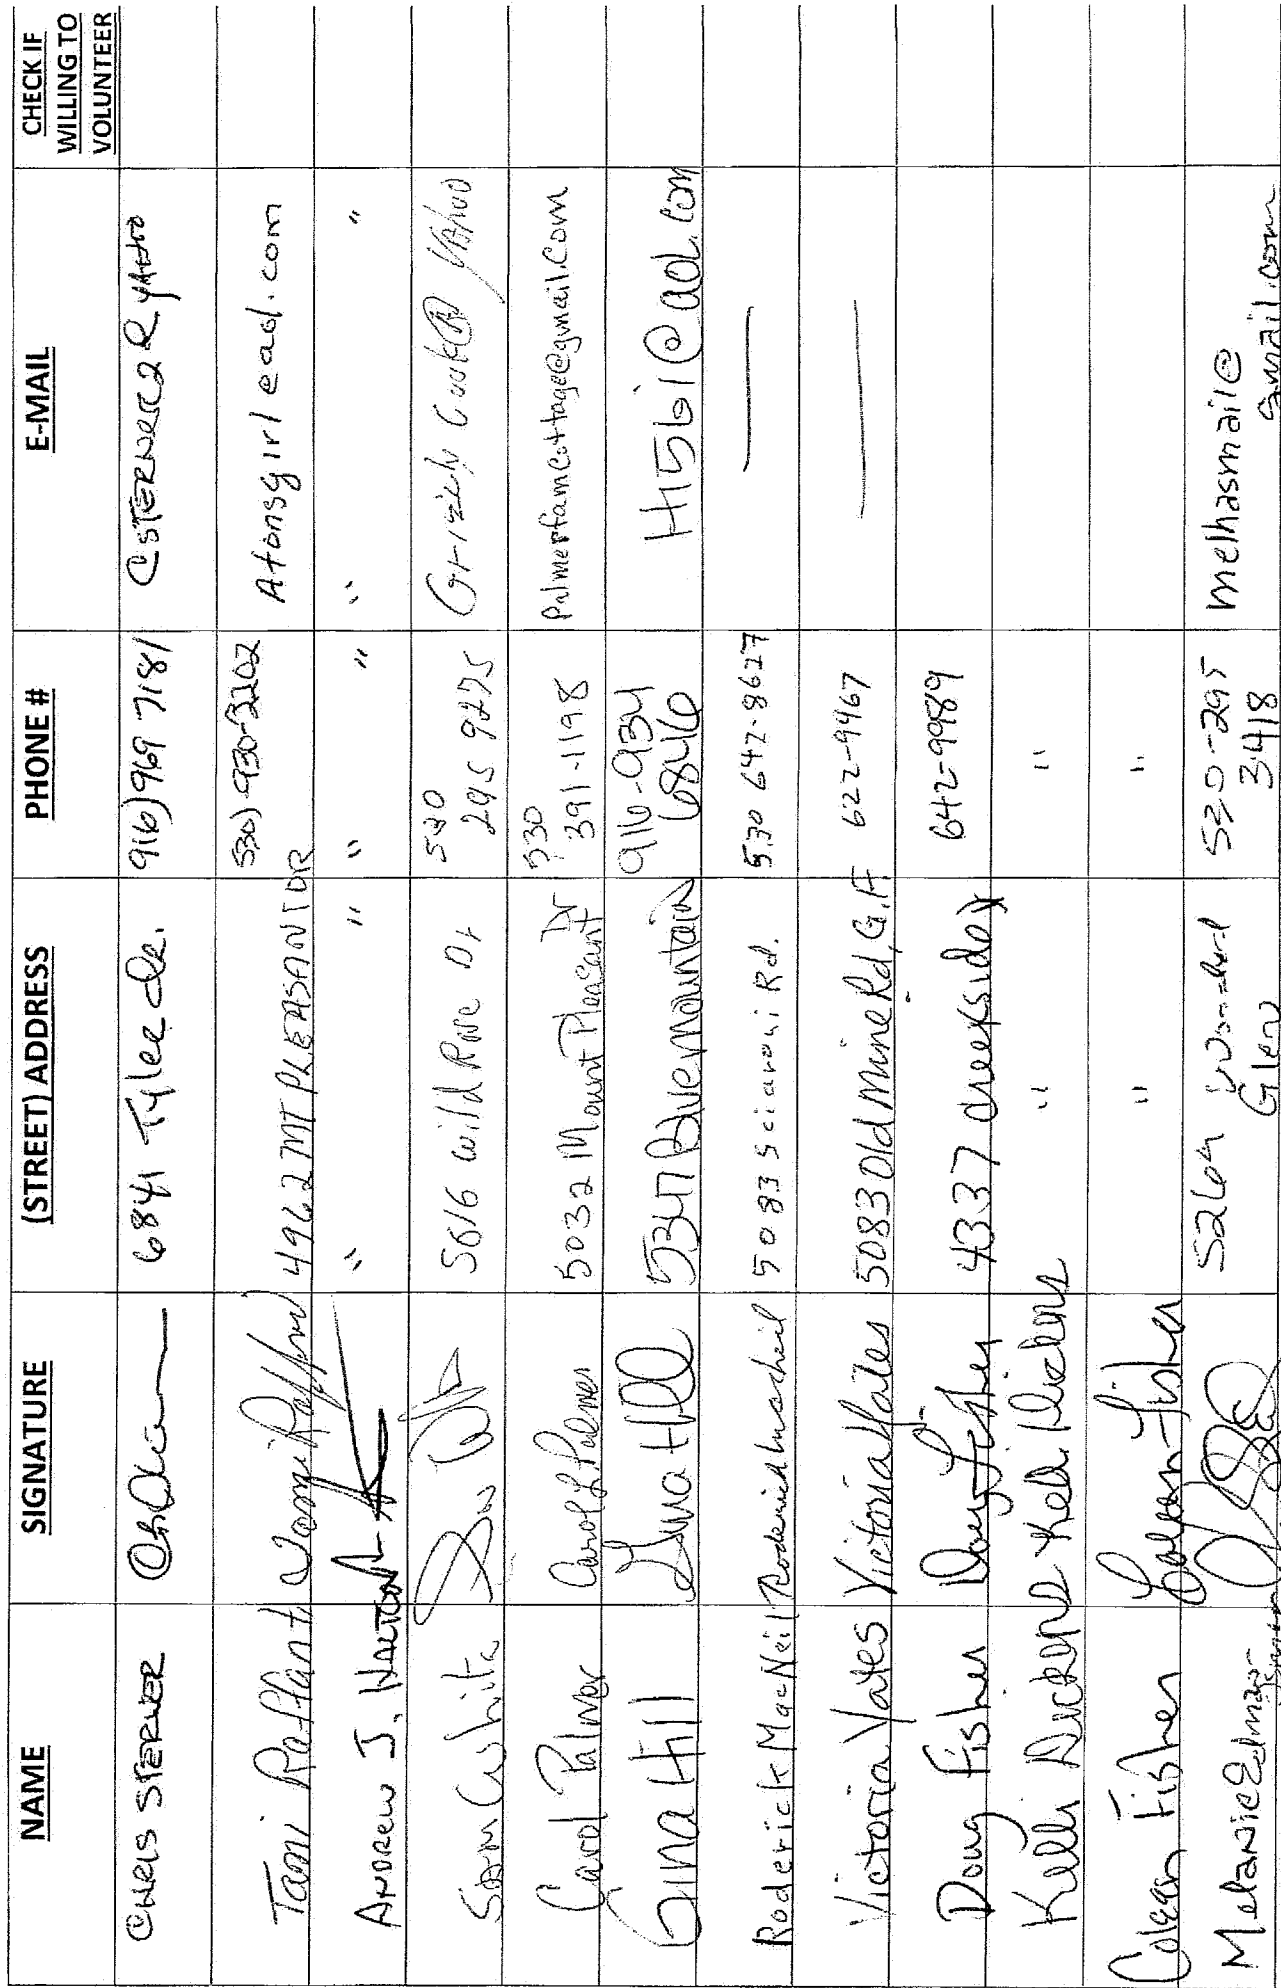 NAME SIGNATURE (STREET) ADDRESS PHONE # E-MAIL CHECK IF
WILLING TO
VOLUNTEER
CHRIS STERNER 6841 Tylee Dr. 916) 969 7181 CSTERNER2@YAHOO
Tami 4962 MT PLEASANT DR 530)-930-2202 Afonsgirl@aol.com
ANDREW J. HALTON " " " " " "
Sam White 5616 Wild Rose Dr 530
295 9275 Grizzly Cook@ Yahoo
Carol Palmer Carol L Palmer 5032 Mount Pleasant Dr 530
391-1198 Palmerfamcottage@gmail.com
Gina Hill Gina Hill 5347 Bluemountain 916-934
6846 H15bi@aol.com
Roderick MacNeil Roderick MacNeil 5083 Sciaroni Rd. 530 642-8627 —
Victoria Yates Victoria Yates 5083 Old Mine Rd, G.F 622-9467 —
Doug Fisher Doug Fisher 4337 Creekside Dr 642-9989
Kelli Dickens Kelli Dickens " "
Coleen Fisher Coleen Fisher " "
Melanie 5264 Glen 530-295
3418 melhasmail@
gmail.com